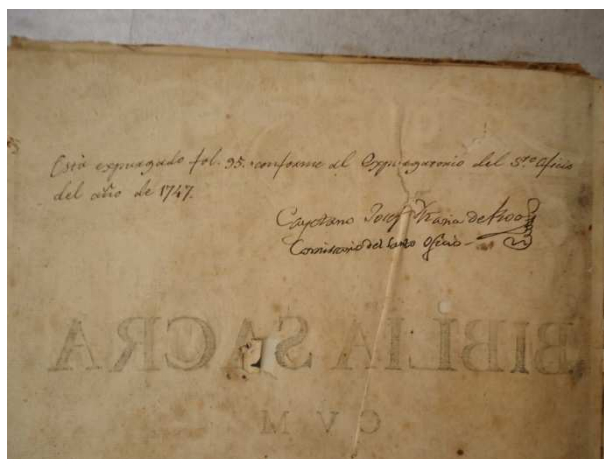 Está expurgado fol. 95. conforme al Expurgatorio del S.to Oficio
del año de 1747.
Cayetano Josef Maria de
Comissario del Santo Oficio
BIBLIA SACRA
CVM